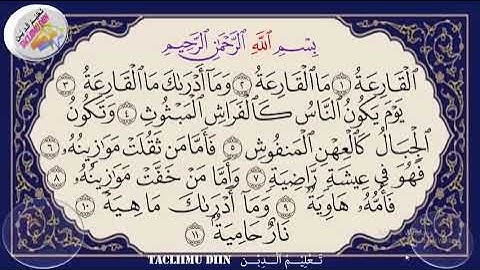 تعليم الدين
بِسْمِ اللَّهِ الرَّحْمَٰنِ الرَّحِيمِ
الْقَارِعَةُ ١ مَا الْقَارِعَةُ ٢ وَمَا أَدْرَىٰكَ مَا الْقَارِعَةُ ٣
يَوْمَ يَكُونُ النَّاسُ كَالْفَرَاشِ الْمَبْثُوثِ ٤ وَتَكُونُ
الْجِبَالُ كَالْعِهْنِ الْمَنْفُوشِ ٥ فَأَمَّا مَن ثَقُلَتْ مَوَٰزِينُهُ ٦
فَهُوَ فِي عِيشَةٍ رَّاضِيَةٍ ٧ وَأَمَّا مَنْ خَفَّتْ مَوَٰزِينُهُ ٨
فَأُمُّهُ هَاوِيَةٌ ٩ وَمَا أَدْرَىٰكَ مَا هِيَهْ ١٠
نَارٌ حَامِيَةٌ ١١
TACLIIMU DIIN تَعْلِيمُ الدِّيْن